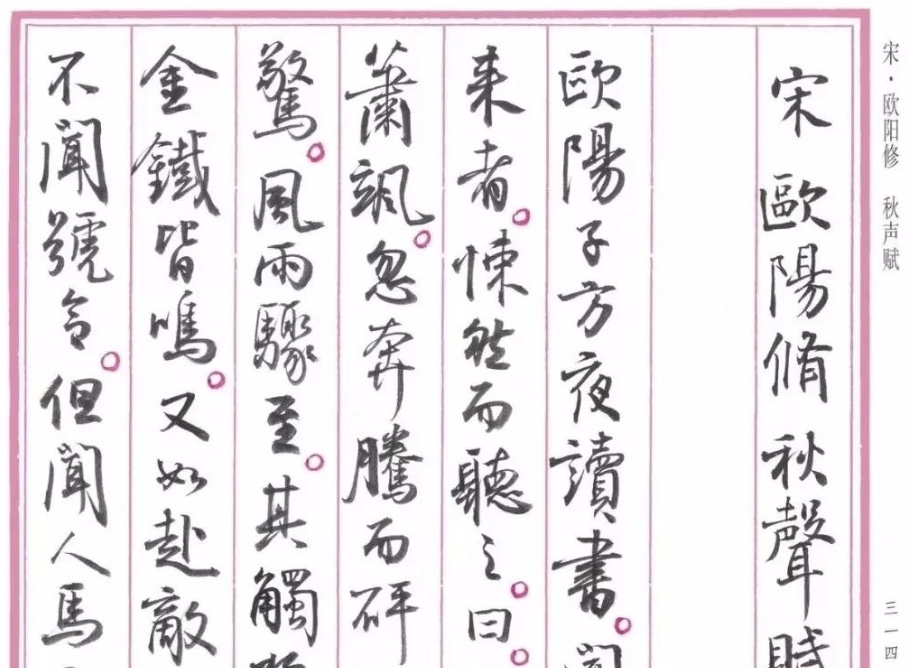 宋·欧阳修 秋声赋
三一四
宋歐陽脩秋聲賦
歐陽子方夜讀書。聞
来者。悚然而聽之。曰。
蕭颯。忽奔騰而砰
驚。風雨驟至。其觸
金鐵皆鳴。又如赴敵
不聞號令。但聞人馬